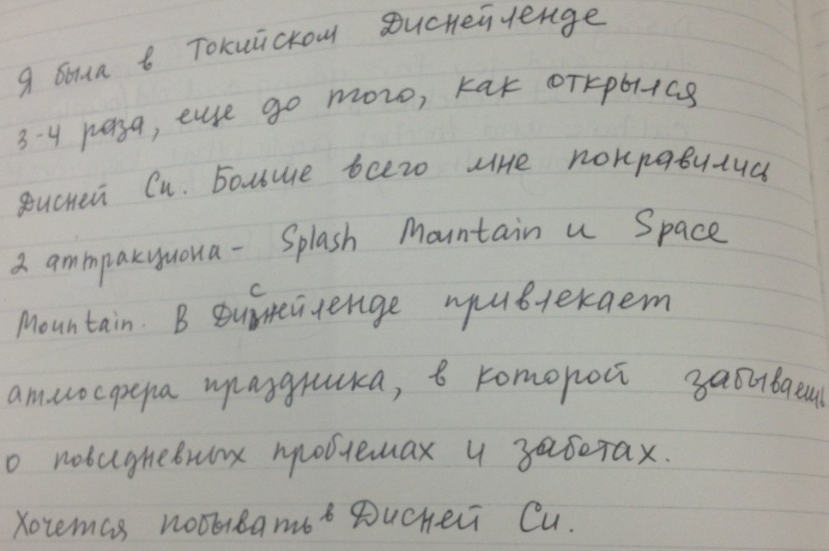 Я была в Токийском Диснейленде
3-4 раза, еще до того, как открылся
Дисней Си. Больше всего мне понравились
2 аттракциона - Splash Mountain и Space
Mountain. В Диснейленде привлекает
атмосфера праздника, в которой забываешь
о повседневных проблемах и заботах.
Хочется побывать в Дисней Си.